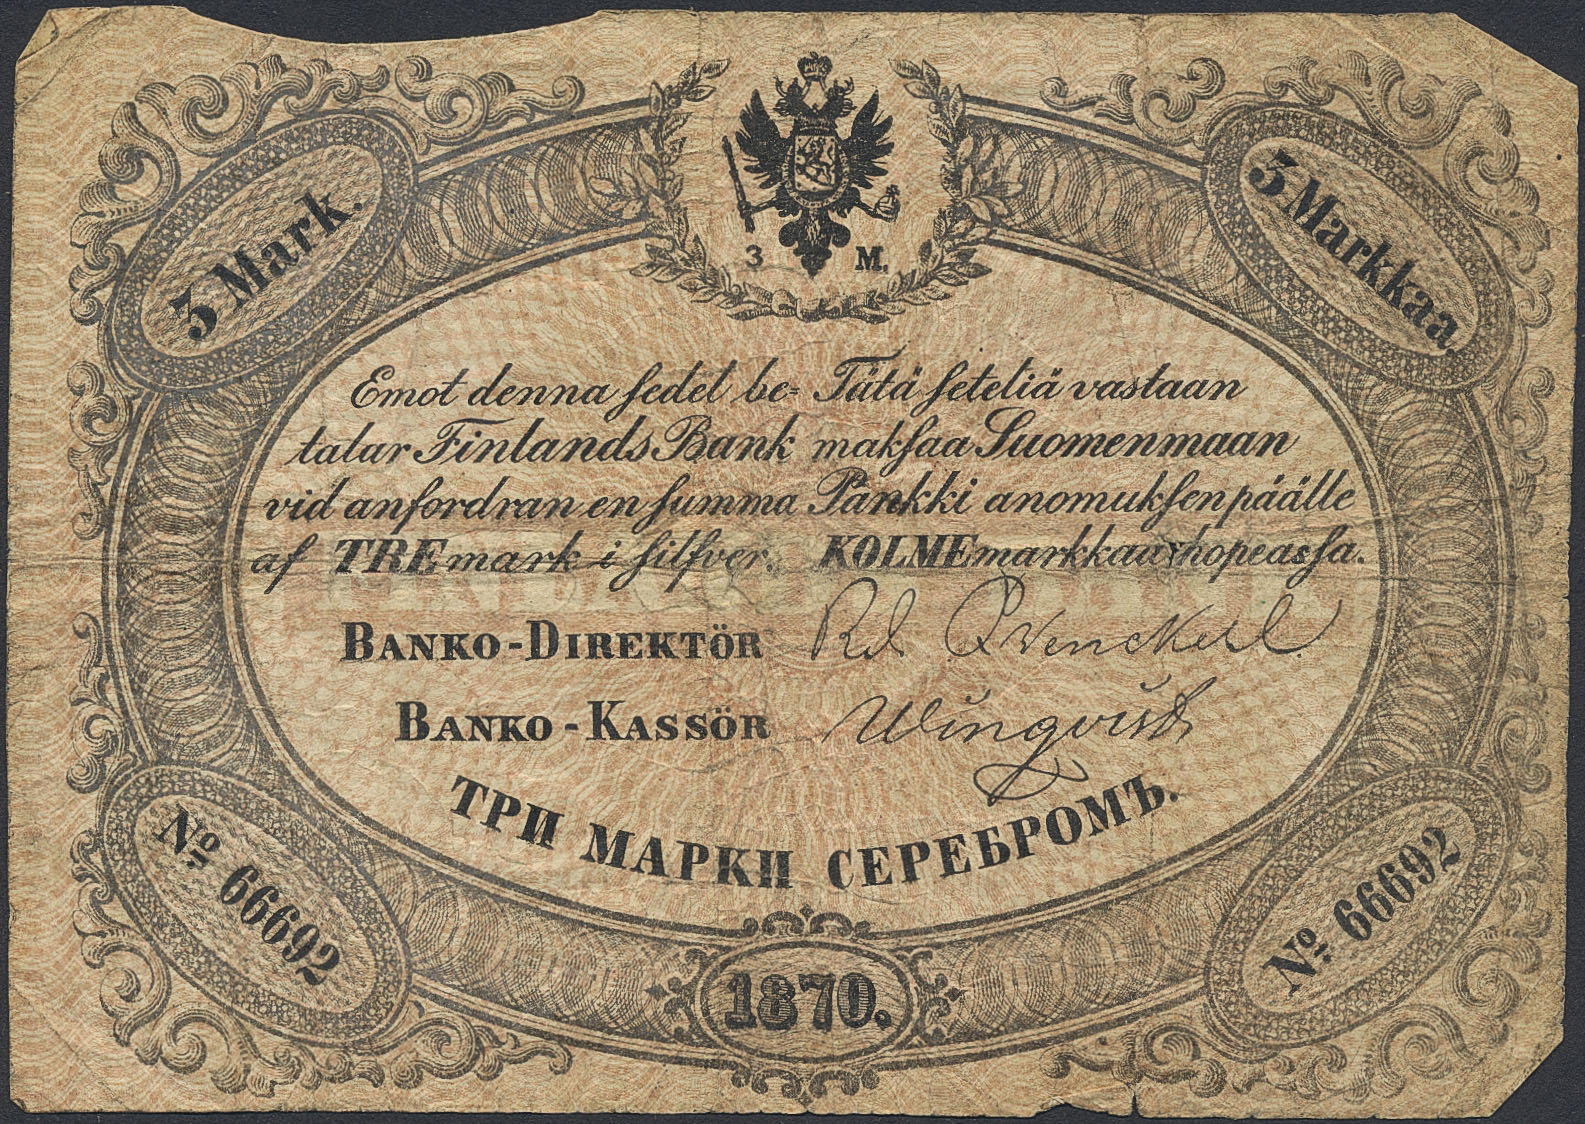 3 Mark.
3 Markkaa.
3 M.
Emot denna sedel be= Tätä seteliä vastaan
talar Finlands Bank maksaa Suomenmaan
vid anfordran en summa Pankki anomuksen päälle
af TRE mark i silfver. KOLME markkaa hopeassa.
BANKO-DIREKTÖR
BANKO-KASSÖR Winqvist
ТРИ МАРКИ СЕРЕБРОМЪ.
No 66692
No 66692
1870.